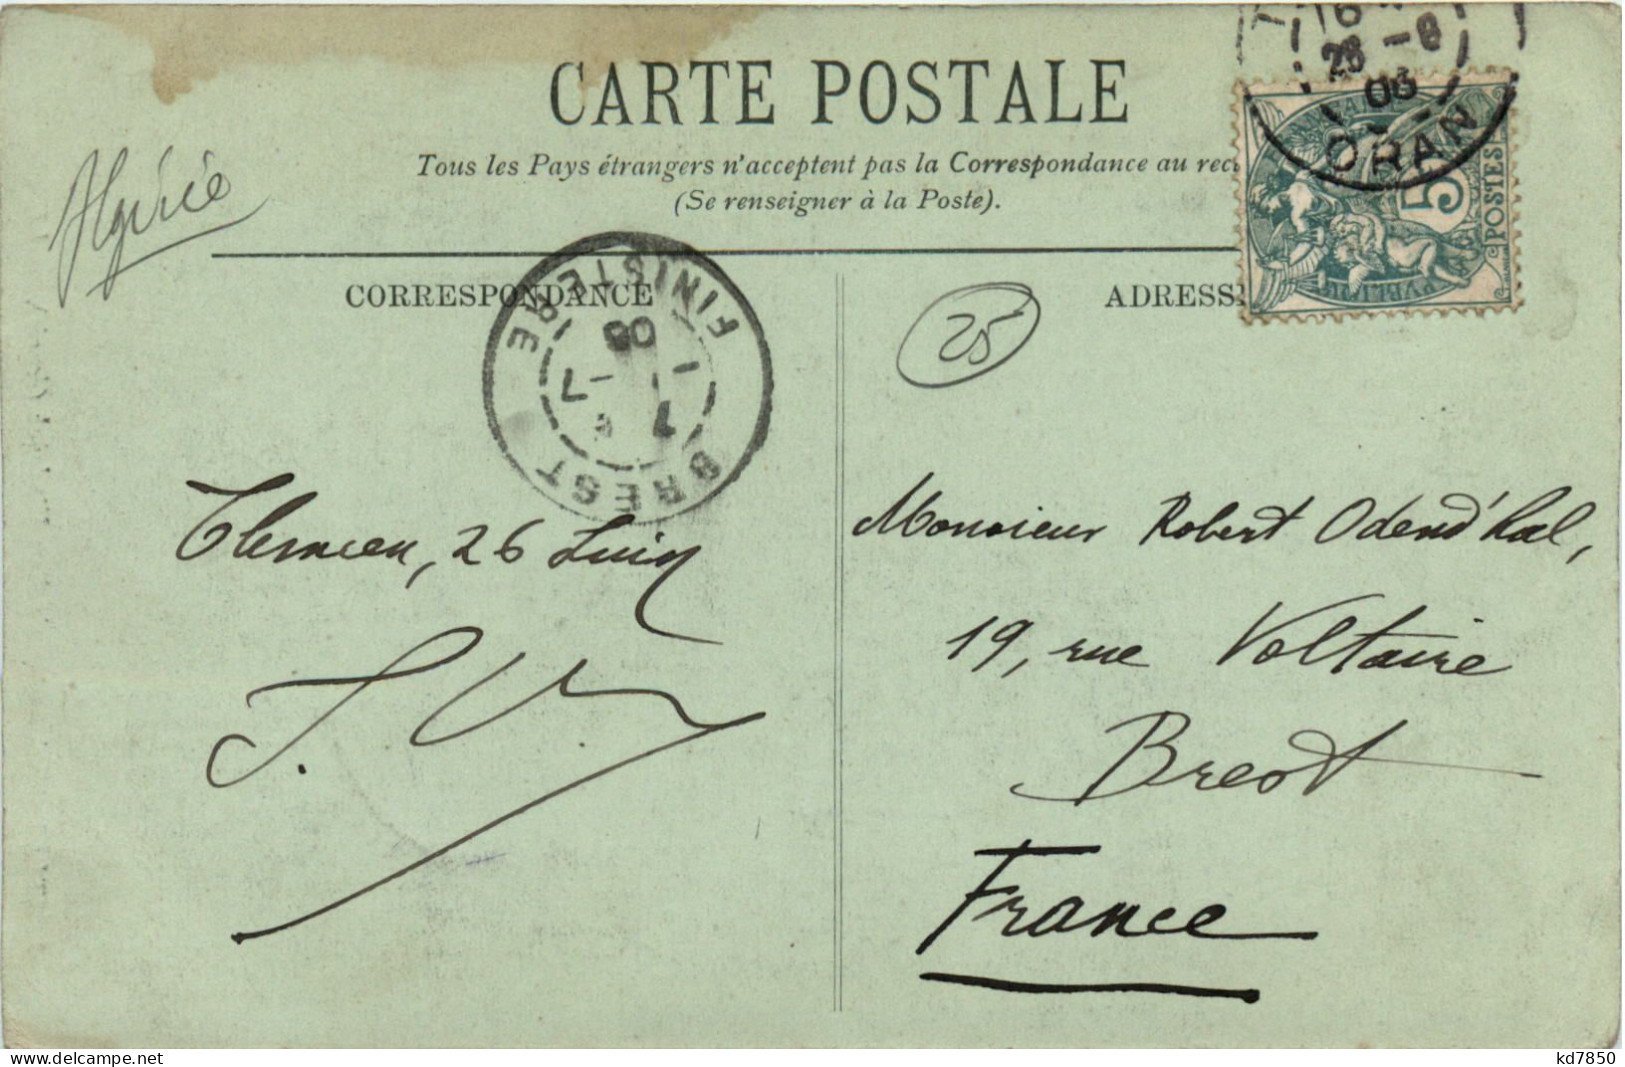 CARTE POSTALE
Tous les Pays étrangers n'acceptent pas la Correspondance au rec
(Se renseigner à la Poste).
Algérie
CORRESPONDANCE
ADRESS
26 -6
08
ORAN
5
POSTES
PVBLIQUE
FINISTERE
08
1 -7
BREST
25
Tlemcen, 26 Juin
Monsieur Robert Odend'hal,
19, rue Voltaire
Brest
France
www.delcampe.net
kd7850